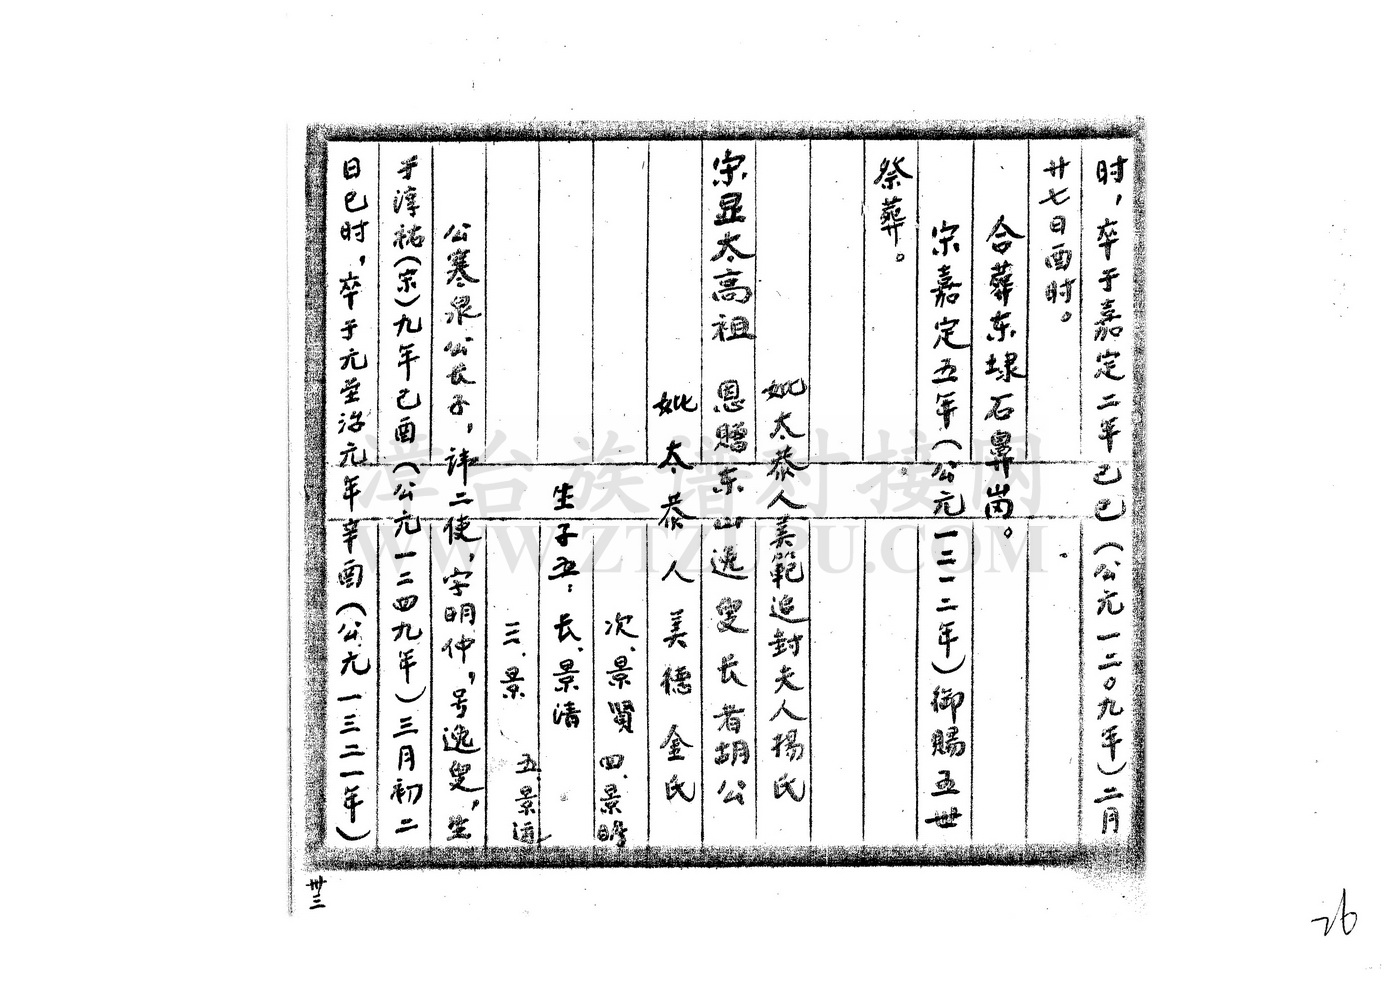 时，卒于嘉定二年己巳（公元一二〇九年）二月
廿七日酉时。
合葬东埭石鼻岗。
宋嘉定五年（公元一二一二年）御赐五世
祭葬。
妣太恭人美範追封夫人揚氏
宗显太高祖 恩贈东山逸叟长者胡公
妣太恭人美德金氏
次、景賢 四、景瞻
生子五：长、景清
三、景 五、景通
公寒泉公长子，諱二使，字明仲，号逸叟，生
于淳祐（宋）九年己酉（公元一二四九年）三月初二
日巳时，卒于元至治元年辛酉（公元一三二一年）
卅三
26
漳台族谱对接网
WWW.ZTZUPU.COM